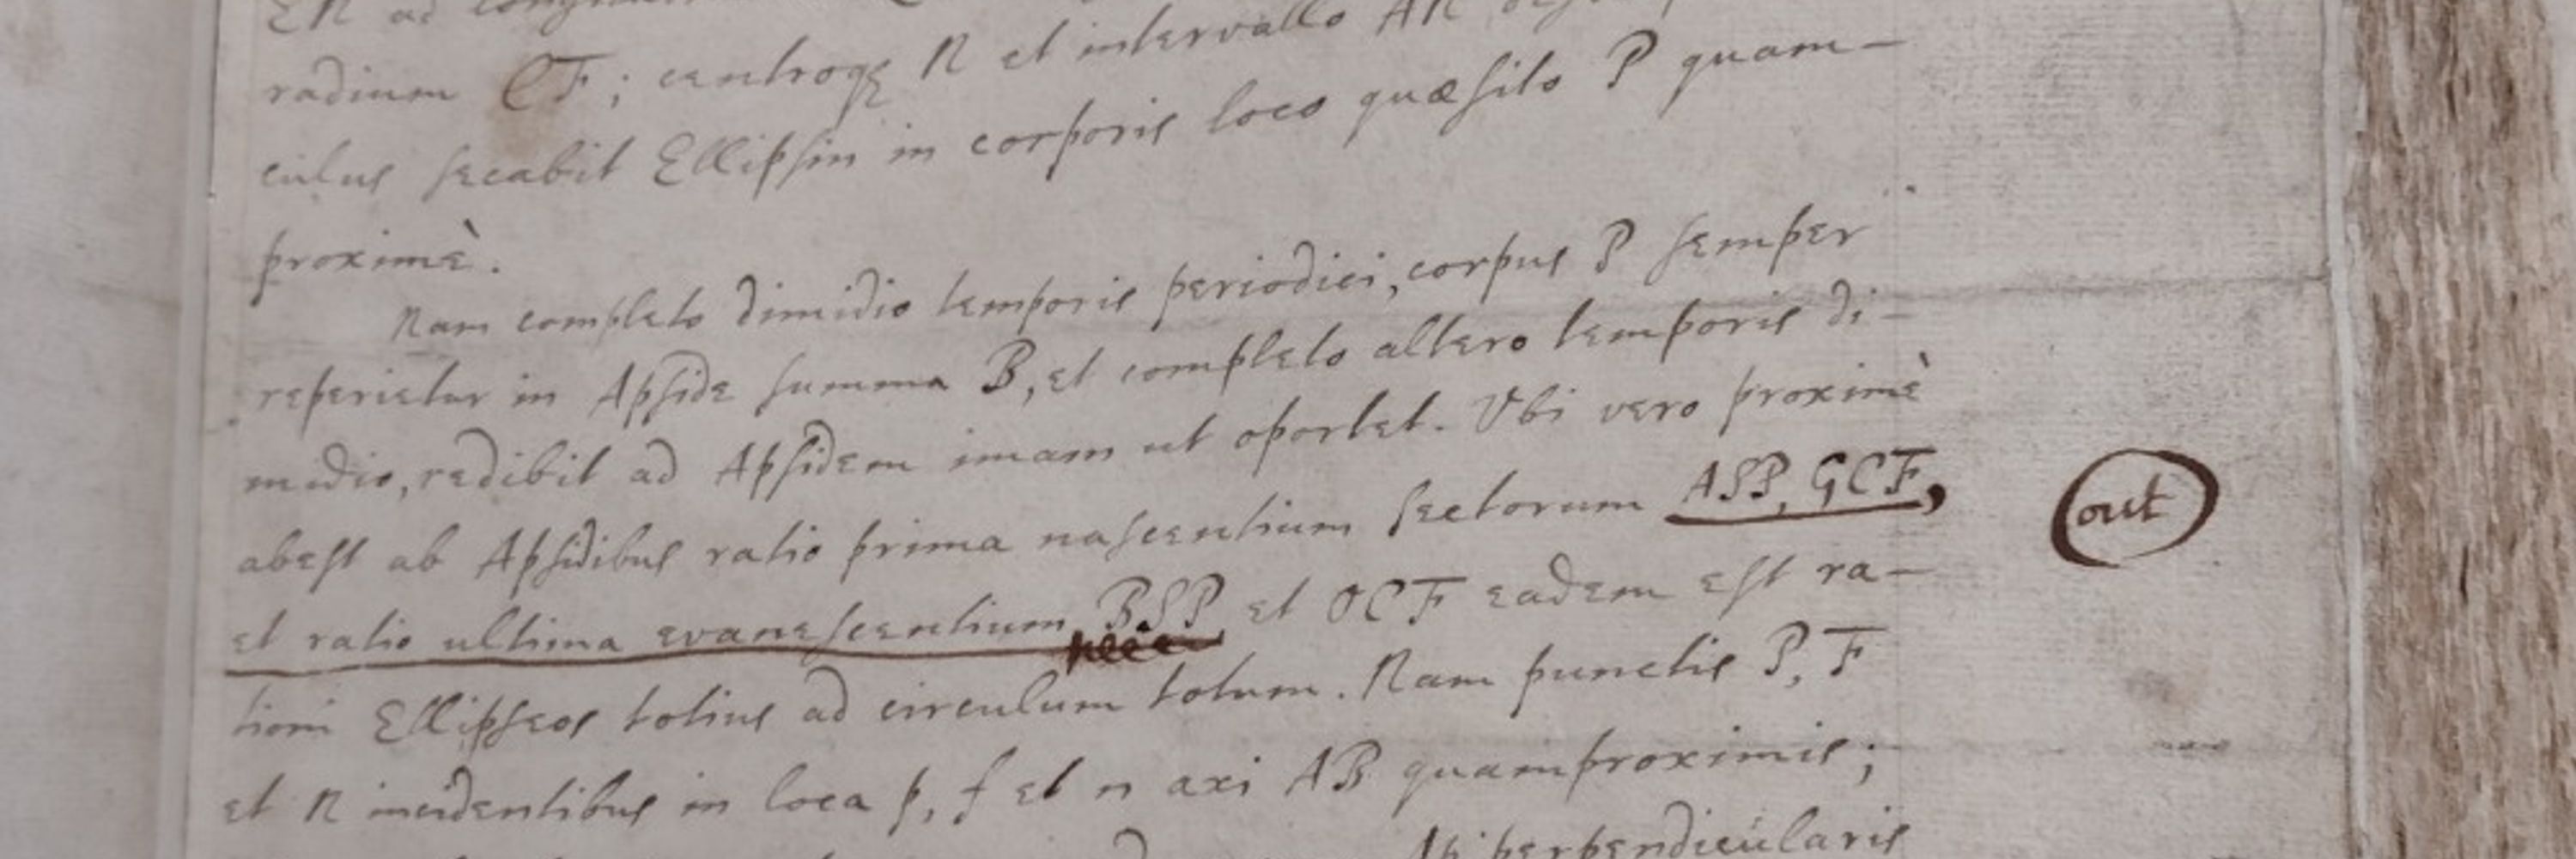 radium CF; centroq3 N et intervallo AN
culus secabit Ellipsin in corporis loco quæsito P quam-
proximè.
Nam completo dimidio temporis periodici, corpus P semper
reperietur in Apside summa B, et completo altero temporis di-
midio, redibit ad Apsidem imam ut oportet. Ubi vero proximè
abest ab Apsidibus ratio prima nascentium sectorum ASP, GCF,
out
et ratio ultima evanescentium BSP et OCF eadem est ra-
tioni Ellipseos totius ad circulum totum. Nam punctis P, F
et N incidentibus in loca p, f et n axi AB quamproximis;
perpendicularis